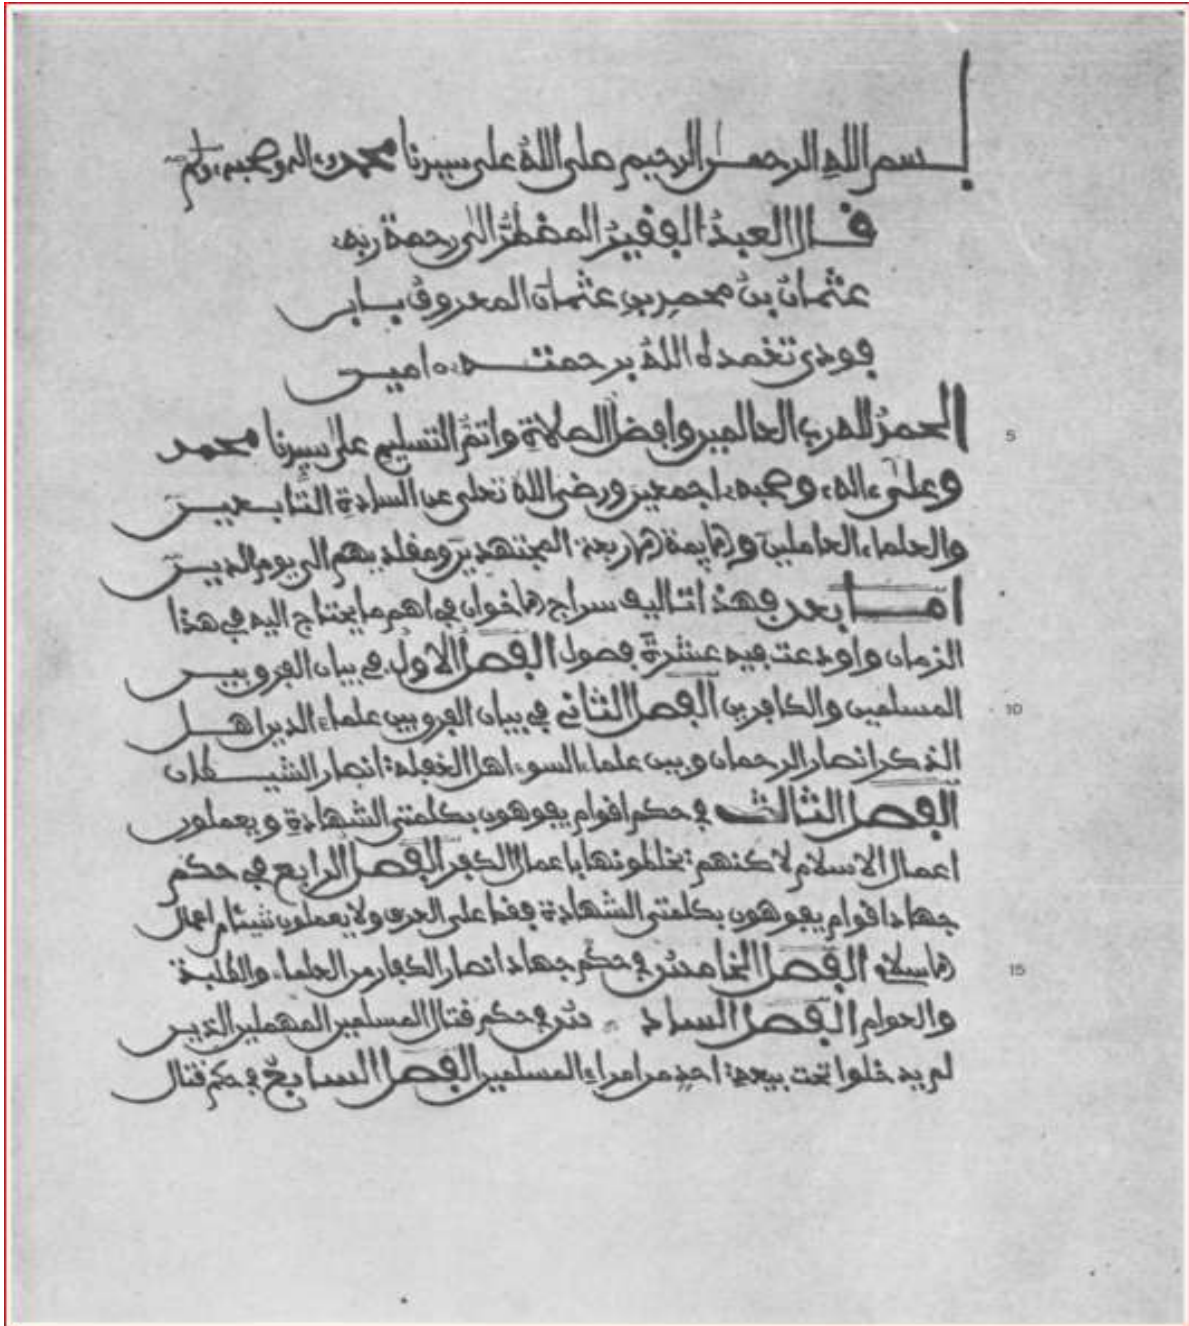 بسم الله الرحمن الرحيم صلى الله على سيدنا محمد وءاله وصحبه وسلم
قال العبد الفقير المضطر الى رحمة ربه
عثمان بن محمد بن عثمان المعروف بابن
فودي تغمده الله برحمته ءامين
الحمد لله رب العالمين وافضل الصلاة واتم التسليم على سيدنا محمد
5
وعلى ءاله وصحبه اجمعين ورضى الله تعلى عن السادة التابعين
والعلماء العاملين والايمة الاربعة المجتهدين ومقلديهم الى يوم الدين
اما بعد فهذا تاليف سراج الاخوان في اهم ما يحتاج اليه في هذا
الزمان واودعت فيه عشرة فصول الفصل الاول في بيان الفرق بين
المسلمين والكافرين الفصل الثاني في بيان الفرق بين علماء الدين اهل
10
الذكر انصار الرحمان وبين علماء السوء اهل الغفلة انصار الشيطان
الفصل الثالث في حكم اقوام يفوهون بكلمتى الشهادة ويعملون
اعمال الاسلام لاكنهم يخلطونها باعمال الكفر الفصل الرابع في حكم
جهاد اقوام يفوهون بكلمتى الشهادة فقط على العرف ولا يعملون شيئا من اعمال
الاسلام الفصل الخامس في حكم جهاد انصار الكفار من العلماء والطلبة
15
والعوام الفصل السادس في حكم قتال المسلمين المهملين الذين
لم يدخلوا تحت بيعة احد من امراء المسلمين الفصل السابع في حكم قتال